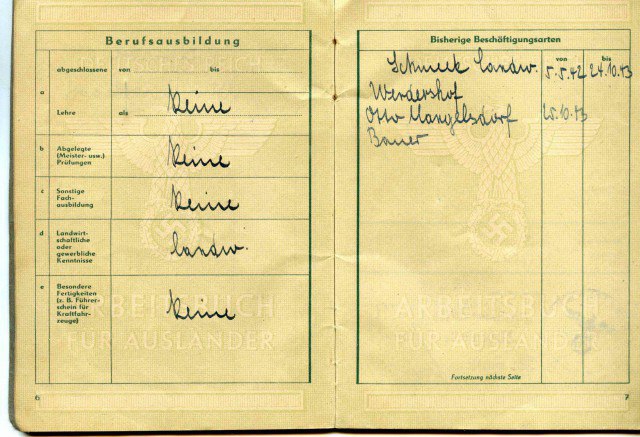 Berufsausbildung
abgeschlossene von bis
a
Lehre als keine
b Abgelegte
(Meister- usw.)
Prüfungen
keine
c Sonstige
Fach-
ausbildung
keine
d Landwirt-
schaftliche
oder
gewerbliche
Kenntnisse
landw.
e Besondere
Fertigkeiten
(z. B. Führer-
schein für
Kraftfahr-
zeuge)
keine
ARBEITSBUCH
FÜR AUSLÄNDER
6
Bisherige Beschäftigungsarten
von bis
Schmeck Landw. 5.5.42 24.10.43
Werdershof
Otto Mangelsdorf 25.10.43
Bauer
ARBEITSBUCH
FÜR AUSLÄNDER
Fortsetzung nächste Seite
7